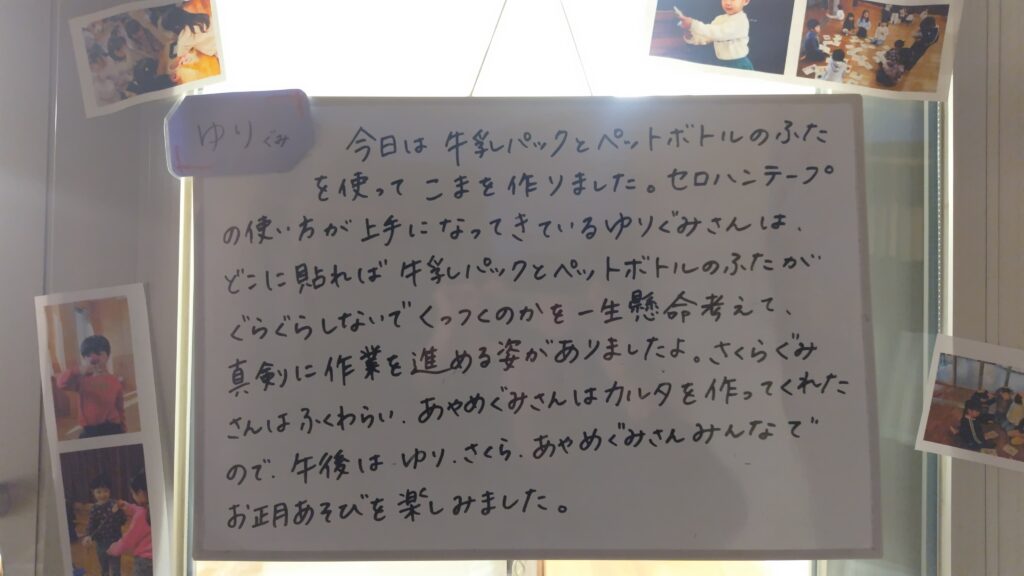 ゆりぐみ
今日は牛乳パックとペットボトルのふた
を使ってこまを作りました。セロハンテープ
の使い方が上手になってきているゆりぐみさんは、
どこに貼れば牛乳パックとペットボトルのふたが
ぐらぐらしないでくっつくのかを一生懸命考えて、
真剣に作業を進める姿がありましたよ。さくらぐみ
さんはふくわらい、あやめぐみさんはカルタを作ってくれた
ので、午後は、ゆり、さくら、あやめぐみさんみんなで
お正月あそびを楽しみました。